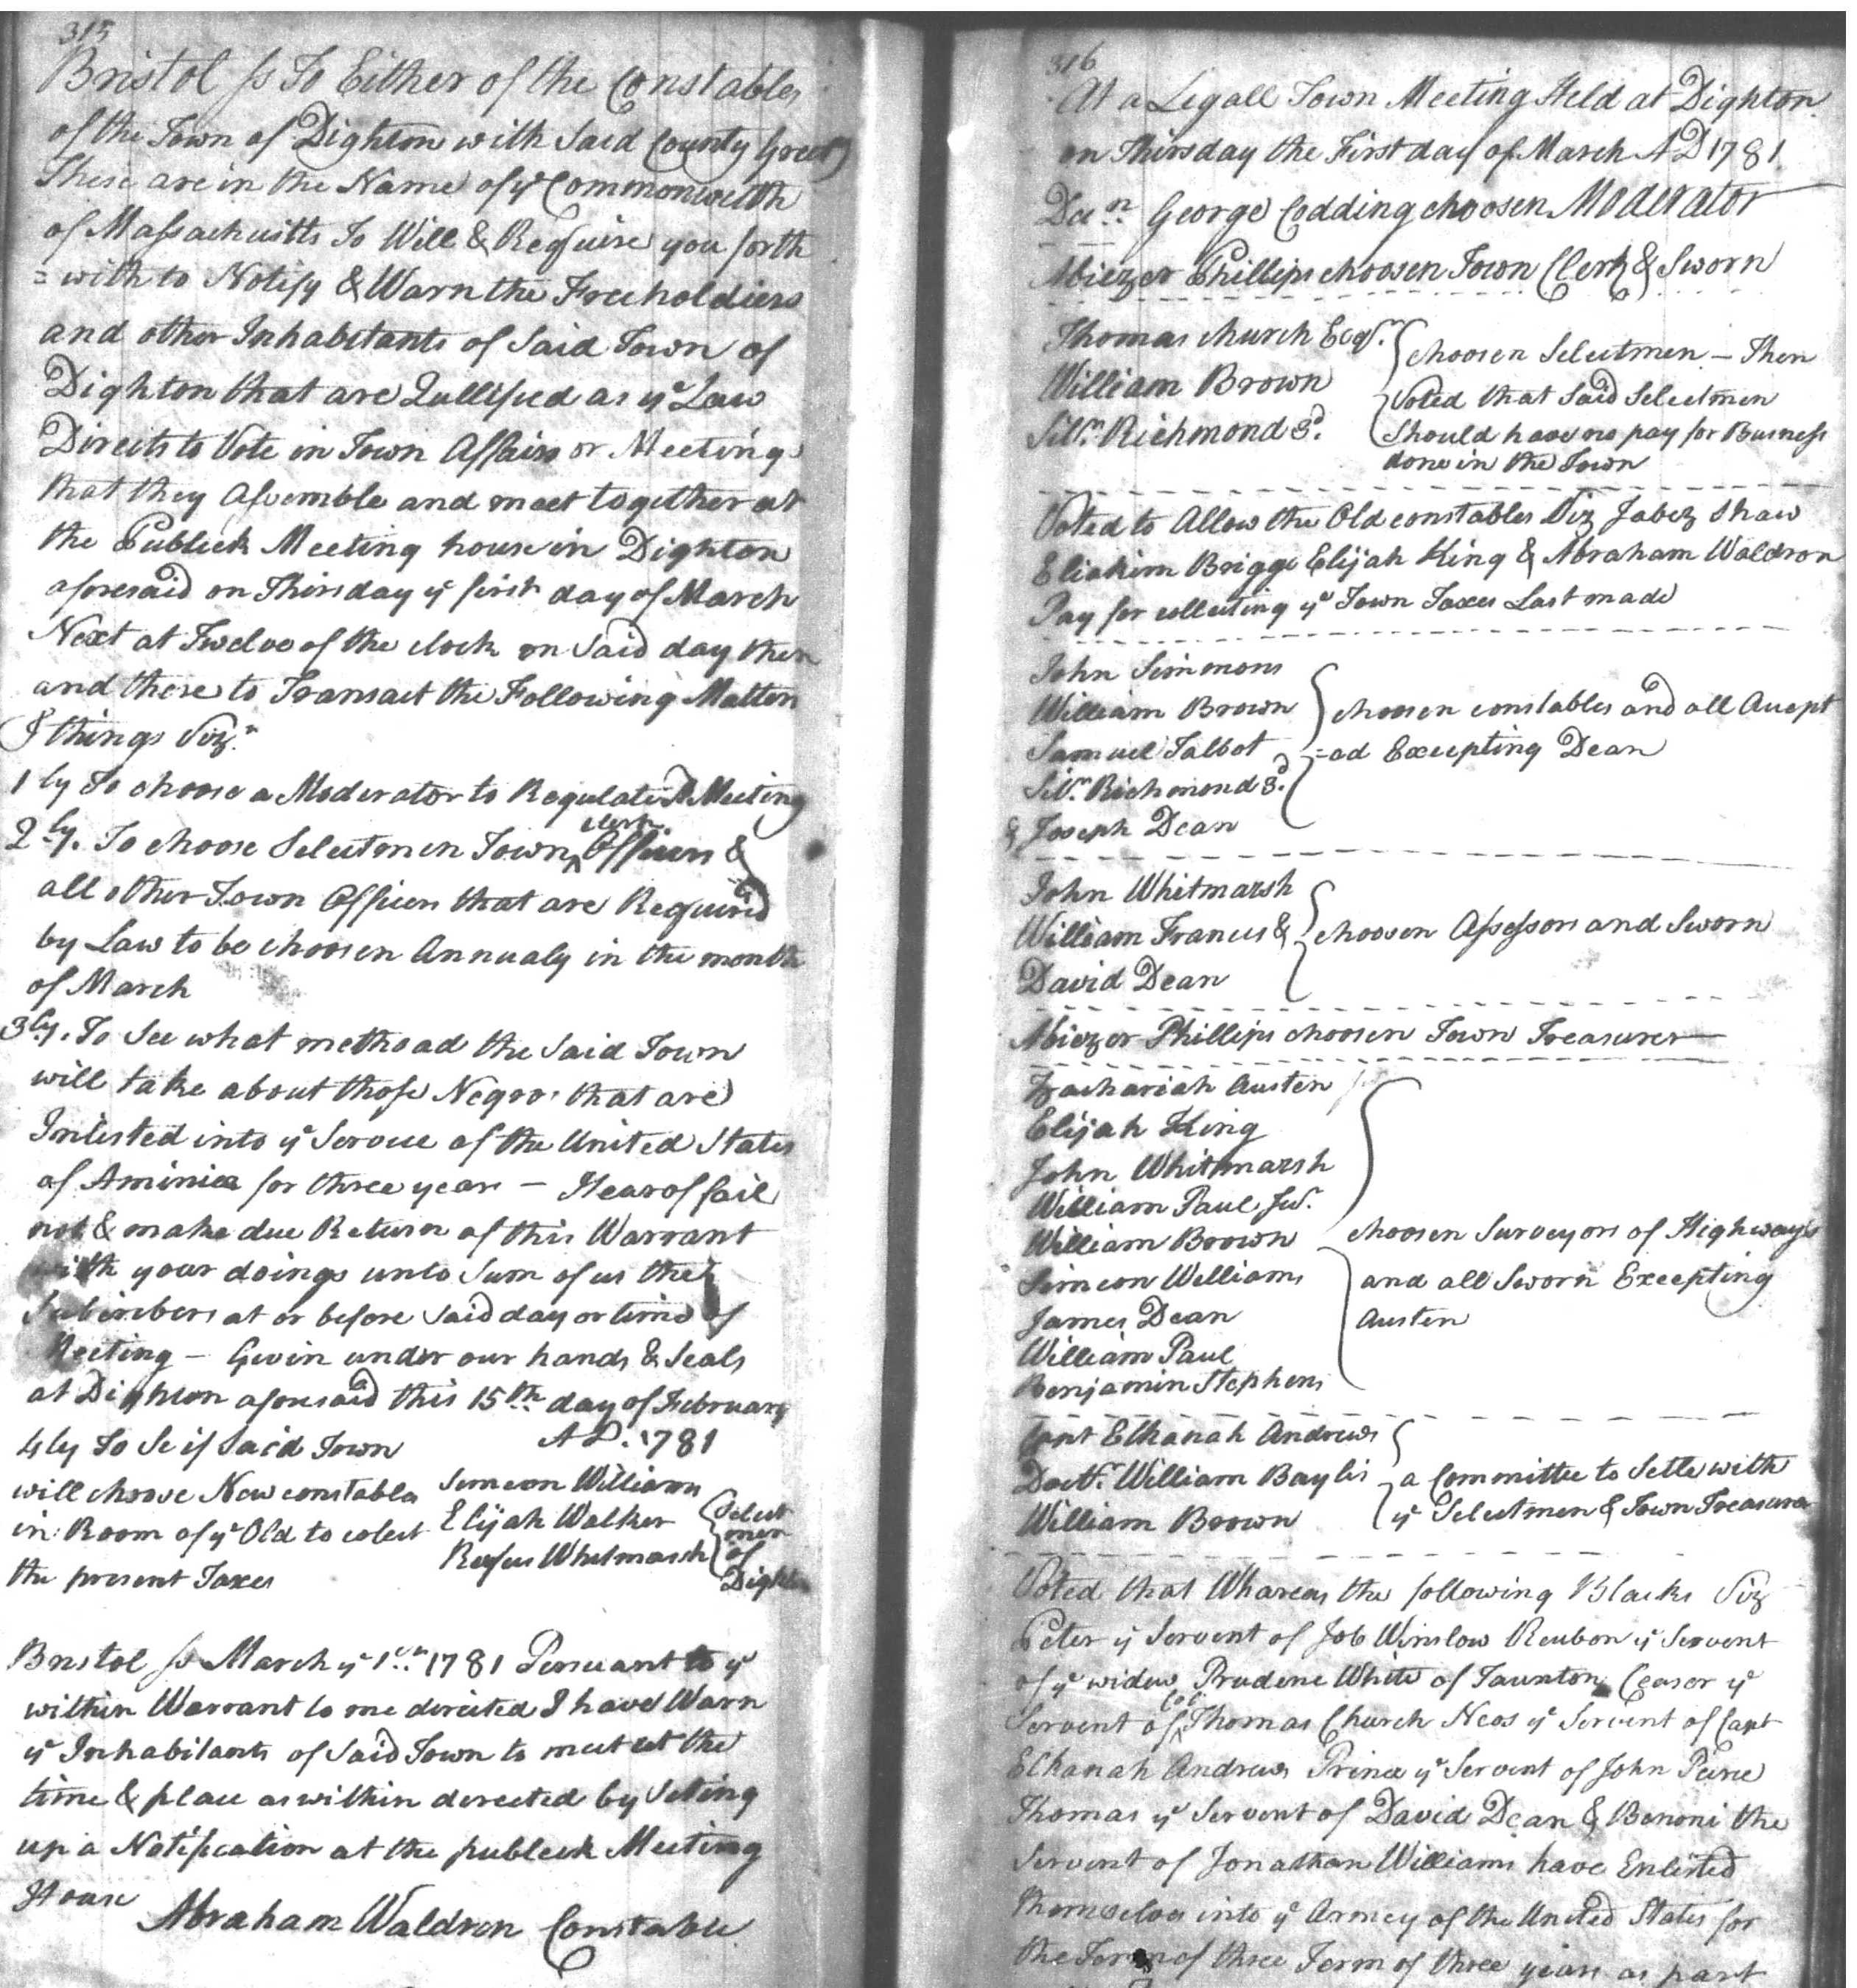 315
Bristol ss To Either of the Constables
of the Town of Dighton with Said County Greet
These are in the Name of ye Commonwelth
of Massachusitts To Will & Require you forth
=with to Notify & Warn the Freeholdiers
and other Inhabitants of Said Town of
Dighton that are Qullified as ye Law
Directs to Vote in Town Affairs or Meeting
that they Assemble and meet together at
the Publick Meeting house in Dighton
aforesaid on Thirsday ye first day of March
Next at Twelve of the clock on Said day then
and there to Transact the Following Matters
& things Viz.
1ly To choose a Moderator to Regulate Sd Meeting
2ly. To choose Selectmen Town clerk Officers &
all other Town Officers that are Required
by Law to be choosen Annualy in the month
of March
3ly. To See what methoad the Said Town
will take about those Negros that are
Inlisted into ye Service of the United States
of Aminica for three years — Hearof fail
not & make due Return of this Warrant
with your doings unto Sum of us the
Subscribers at or before Said day or time of
Meeting — Givin under our hands & Seals
at Dighton aforesaid this 15th day of February
AD. 1781
4ly To Se if Said Town
will choose New constables
in Room of ye Old to colect
the present Taxes
Simeon Williams
Elijah Walker
Rufus Whitmarsh
Select
men
of
Dighton
Bristol ss March ye 1st 1781 Persuant to ye
within Warrant to me directed I have Warn
ye Inhabitants of Said Town to meet at the
time & place as within derected by Seting
up a Notification at the publeck Meeting
House
Abraham Waldron Constable
316
At a Legall Town Meeting Held at Dighton
on Thirsday the First day of March AD 1781
Dean George Codding choosen Moderator
Abiezer Phillips choosen Town Clerk & Sworn
Thomas church Esqr.
William Brown
Silvr. Richmond 3d.
choosen Selectmen — Then
Voted that Said Selectmen
Should have no pay for Business
done in the Town
Voted to Allow the Old constables Viz Jabez Shaw
Eliakim Briggs Elijah King & Abraham Waldron
Pay for collecting ye Town Taxes Last made
John Simmons
William Brown
Samuel Talbot
Silvr. Richmond 3d.
& Joseph Dean
choosen constables and all Accept
=ed Excepting Dean
John Whitmarsh
William Francis &
David Dean
choosen Assessors and Sworn
Abiezer Phillips choosen Town Treasurer
Zachariah Austen
Elijah King
John Whitmarsh
William Paul Jur.
William Brown
Simeon Williams
James Dean
William Paul
Benjamin Stephens
choosen Surveyors of Highways
and all Sworn Excepting
Austen
Capt Elkanah Andrews
Doctr. William Baylis
William Brown
a Committee to Setle with
ye Selectmen & Town Treasurer
Voted that Whareas the following Blacks Viz
Peter ye Servent of Job Winslow Reubon ye Servent
of ye widow Prudence White of Taunton Ceaser ye
Servent of Col Thomas Church Neos ye Servent of Capt
Elkanah Andrews Prince ye Servent of John Peirce
Thomas ye Servent of David Dean & Benoni the
Servent of Jonathan Williams have Enlisted
themselves into ye Armey of the United States for
the Term of three Term of three years as part